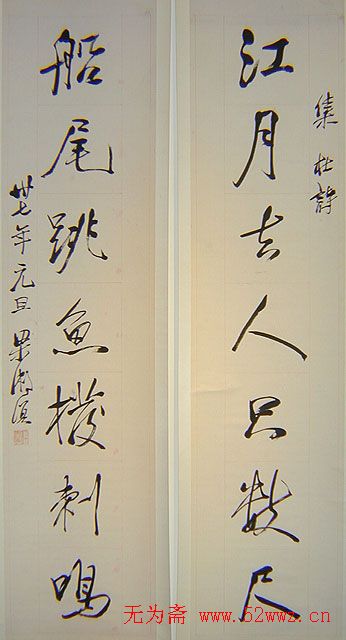 集 杜詩
江月去人只數尺
船尾跳魚撥刺鳴
卅七年元旦 梁漱溟
无为斋 www.52wwz.cn